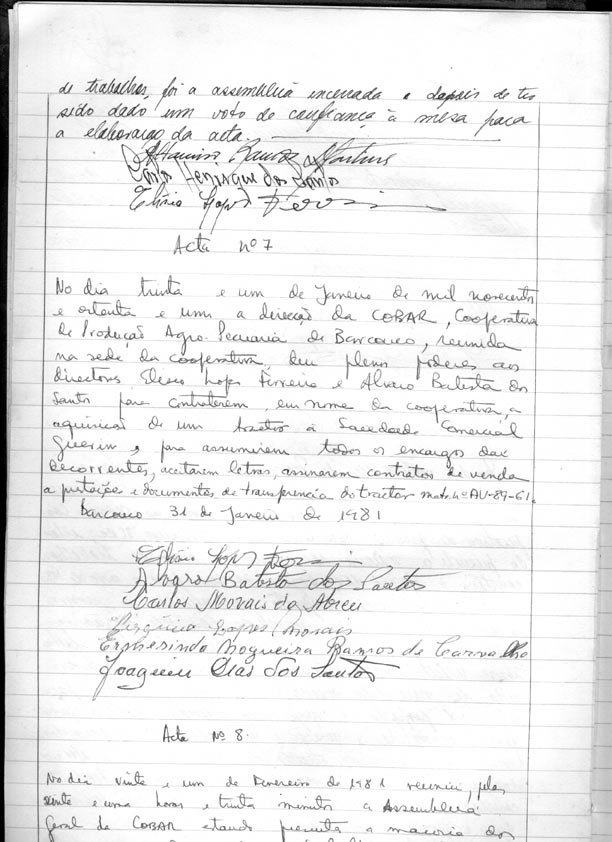 de trabalhos, foi a assembleia encerrada e depois de ter
sido dado um voto de confiança à mesa para
a elaboração da acta.
Martins
Carlos Henrique dos Santos
Elisio Lopes
Acta nº 7
No dia trinta e um de Janeiro de mil novecentos
e oitenta e um a direcção da COBAR, Cooperativa
de Produção Agro-Pecuária de Barcouço, reunida
na sede da cooperativa, deu plenos poderes aos
directores Elisio Lopes Ferreira e Alvaro Batista dos
Santos para contraterem, em nome da cooperativa, a
aquisição de um tractor à Sociedade Comercial
Guerin e para assumirem todos os encargos daí
decorrentes, aceitarem letras, assinarem contratos de venda
a prestações e documentos de transferencia do tractor matr. nº AU-89-61.
Barcouço 31 de Janeiro de 1981
Elisio Lopes
Alvaro Batista dos Santos
Carlos Morais de Abreu
Lopes Morais
Ermesindo Nogueira Ramos de Carvalho
Joaquim Dias dos Santos
Acta nº 8.
No dia vinte e um de Fevereiro de 1981 reuniu, pelas
vinte e uma horas e trinta minutos a Assembleia
Geral da COBAR estando presente a maioria dos